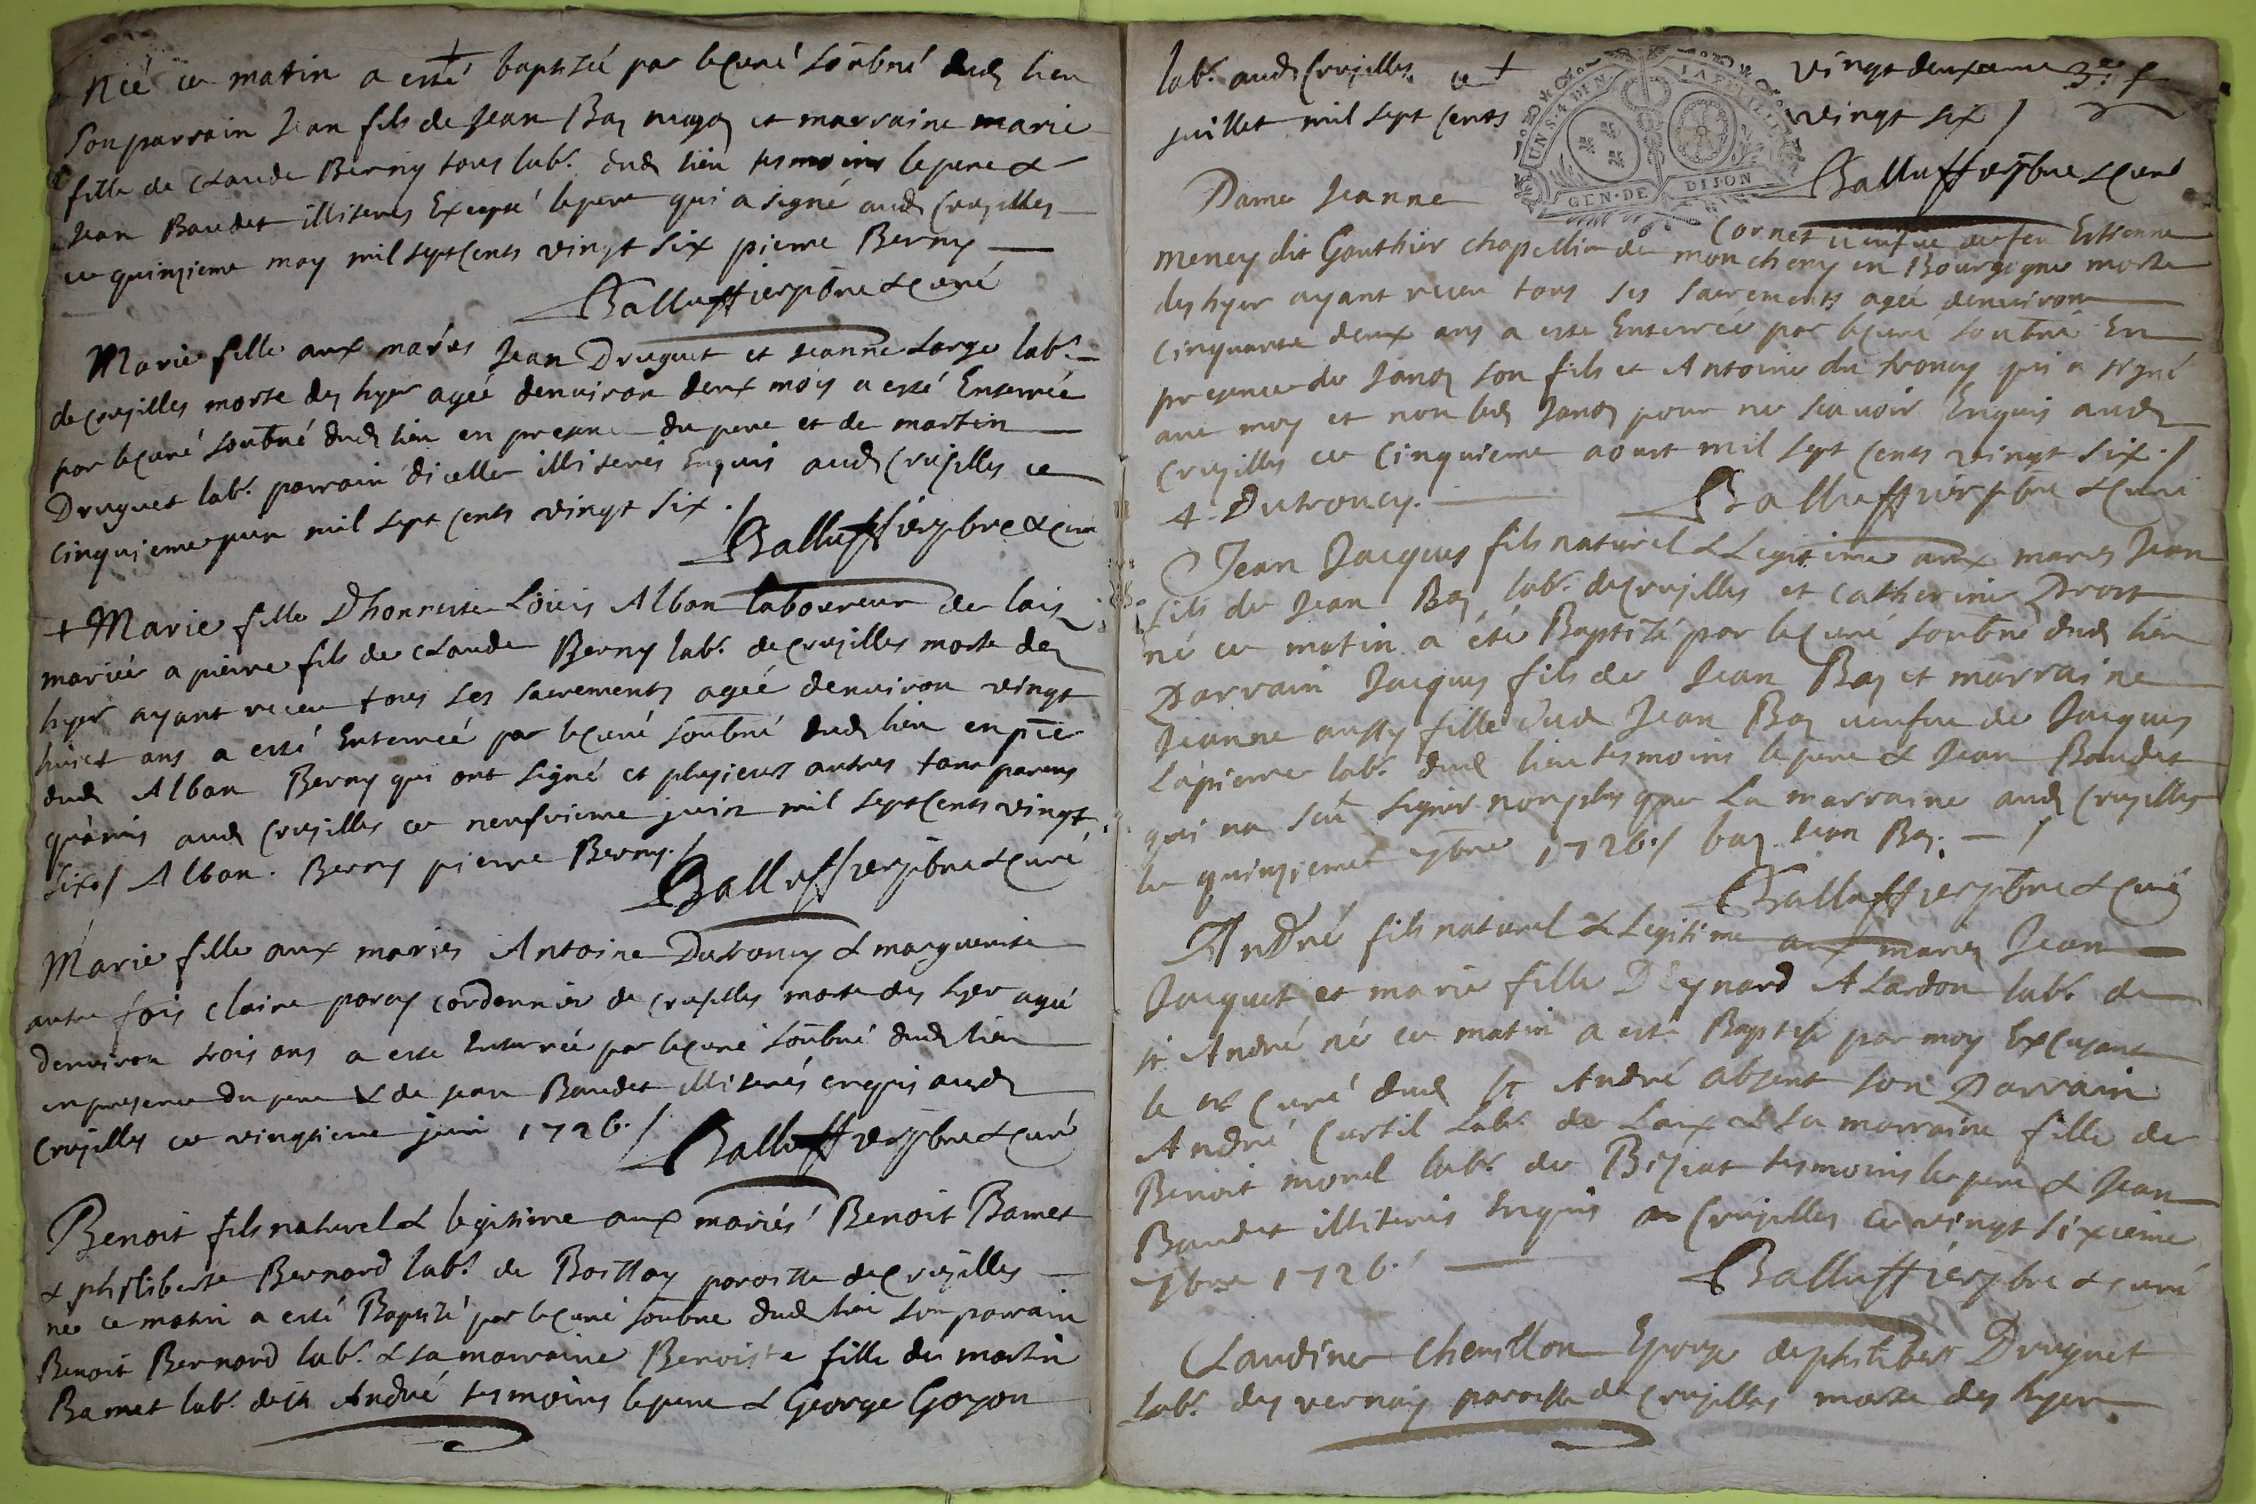 née ce matin a esté baptisée par le curé soubné dud lieu
son parrain Jean fils de Jean Bay et marraine marie
fille de Claude Berny tous lab.r dud lieu tesmoins le pere &
Jean Baudet illiteres Excepté le pere qui a signé aud Crusilles
ce quinzieme may mil sept Cents vingt six pierre Berny
Balluffier pbre & curé
Marie fille aux mariés Jean Druguet et Jeanne Large lab.r
de crusilles morte des hyer agée denuiron deux mois a esté Enterrée
par le curé soubné dud lieu en presence du pere et de martin
Druguet lab.r parrain dicelle illiterés Enquis aud Crusilles ce
cinquieme juin mil sept cents vingt six ./
Balluffier pbre & curé
+ Marie fille Dhonneste Loüis Albon laboureur de lais
mariée a pierre fils de Claude Berny lab.r de crusilles morte des
hyer ayant receu tous ses sacrements agée denuiron vingt
huict ans a esté Enterrée par le curé soubné dud lieu en pñce
dud Albon Berny qui ont signé et plusieurs autres tant parens
qu'amis aud Crusilles ce neufuieme juin mil sept Cents vingt
six./ Albon . Berny pierre Berny./
Balluffier pbre & curé
Marie fille aux mariés Antoine Dutroncy & marguerite
autre fois claire cordonnier de crusilles morte des hyer agée
denuiron trois ans a esté Enterrée par le curé soubné dud lieu
en presence du pere & de Jean Baudet illiterés enquis aud
Crusilles ce vingtieme juin 1726./
Balluffier pbre & curé
Benoit fils naturel & legitime aux mariés Benoit Bamet
& philiberte Bernard lab.r de Boissay paroisse de Crusilles
né ce matin a esté Baptizé par le curé soubné dud lieu son parrain
Benoit Bernard lab.r & sa marraine Benoiste fille de martin
Bamet lab.r de st André tesmoins le pere & George Goyon
lab.r aud Crusilles ce + vingt deuxieme
juillet mil sept Cents vingt six /
UN S. 4 DEN. LA FEUILLE
GEN. DE DIJON
Balluffier pbre & curé
Dame Jeanne Cornet veufue de feu Estienne
meney dit Gouthier chapellier de moncheny en Bourgogne morte
des hyer ayant receu tous ses sacrements agée denuiron
Cinquante deux ans a esté Enterrée par le curé soubné En
presence de son fils et Antoine du troncy qui a signé
auec moy et non led pour ne scauoir Enquis aud
Crusilles ce Cinquieme aoust mil sept Cents vingt six ./
A. Dutroncy.
Balluffier pbre & curé
Jean Jacques fils naturel & Legitime aux mariés Jean
fils de Jean Bay lab.r de Crusilles et Catherine Drost
né ce matin a été Baptizé par le curé soubné dud lieu
Parrain Jacques fils de Jean Bay et marraine
Jeanne aussy fille dud Jean Bay veufue de Jacques
Lapierre lab.r dud lieu tesmoins le pere & Jean Baudet
qui na sceu signer non plus que La marraine aud Crusilles
le quinzieme 7bre 1726./ bay Jean Bay. /
Balluffier pbre & curé
André fils naturel & Legitime aux mariés Jean
Jacquet et marie fille Deynard ALardon lab.r de
st André né ce matin a esté Baptisé par moy Excusant
le curé dud st André absent son Parrain
André Curtil Lab.r de Laix & La marraine fille de
Benoit morel lab.r de Biziat tesmoins le pere & Jean
Baudet illiterés Enquis Crusilles ce vingt sixieme
7bre 1726.
Balluffier pbre & curé
Claudine Chevillon Epouze de philibert Druguet
Lab.r des vernays paroisse de Crusilles morte des hyer